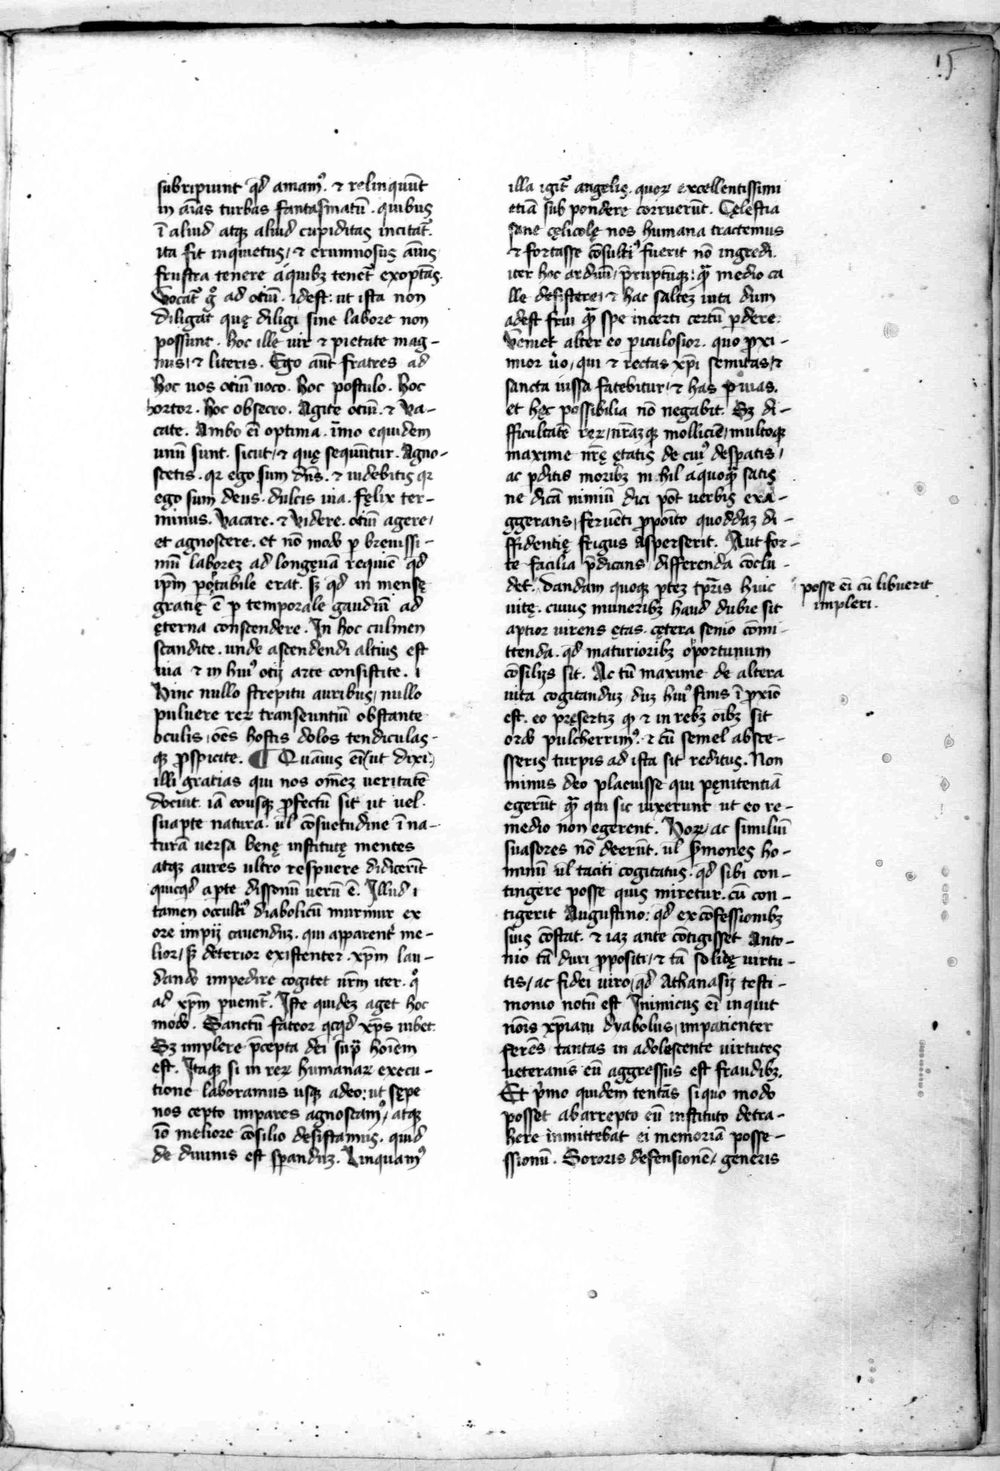 15
subripiunt qđ amamꝰ. ⁊ relinquūt
in aīas turbas fantasmatū. quibus
ī aliud atqꝫ aliud cupiditas incitat᷑.
ita fit inquietus, ⁊ erumnosus aīus
frustra tenere a quibꝫ tenet᷑ exoptās.
Vocat᷑ gͦ ad otiū. idest: ut ista non
diligāt quę diligi sine labore non
possunt. hoc ille uir ⁊ pietate mag-
nus, ⁊ literis. Ego aūt fratres ad
hoc uos otiū uoco. hoc postulo. hoc
hortor. hoc obsecro. Agite otiū. ⁊ Va-
cate. Ambo eī optima. īmo equidem
unū sunt. sicut, ⁊ quę sequūntur. Agno-
scetis. qꝛ ego sum dn̄s. ⁊ uidebitis qꝛ
ego sum deus. dulcis uia. fęlix ter-
minus. Vacare. ⁊ Videre. otiū agere,
et agnoscere. et nō modo ꝑ breuissi-
mū laborez ad longęuā requiē qđ
ip̄m portabile erat. sꝫ qđ in mensę
gratię ē ꝑ temporale gaudiū ad
ęterna conscendere. In hoc culmen
scandite. unde ascendendi altius est
uia ⁊ in huiꝰ otij arte consistite.
Hinc nullo strepitu auribus, nullo
puluere reꝝ transeuntiū obstante
oculis, oēs hostis dolos tendiculas-
qꝫ ꝓspicite. ¶ Quāuis eī (ut dixi)
illi gratias qui nos om̄ez ueritatē
docuit. iā eousqꝫ ꝓfectū sit ut uel.
suapte natura. ul̄ cōsuetudine ī na-
turā uersa benę institutę mentes
atqꝫ aures ultro respuere didicerīt
quicqđ aperte dissonū uerū ē. Illud
tamen occultiꝰ diabolicū murmur ex
ore impij cauenduꝫ. qui apparent᷑ me-
lior, sꝫ deterior existenter. xp̄m lau-
dando impedire cogitet nr̄m iter. qͦ
ad xp̄m ꝑuenit᷑. Iste quideꝫ aget hoc
modo. Sanctū fateor qcqđ xp̄s iubet.
Sꝫ implere p̄cepta dei sup̄ hoīem
est. Itaqꝫ si in reꝝ humanaꝝ execu-
tione laboramus usqꝫ adeo: ut sępe
nos cepto impares agnoscamꝰ, atqꝫ
iō meliore cōsilio desistamus. quid
de diuinis est sꝑanduꝫ. Linquamꝰ
illa igit᷑ angelis. quoꝝ excellentissimi
etiā sub pondere corruerūt. Cęlestia
sane cęlicolę nos humana tractemus
⁊ fortasse cōsultiꝰ fuerit nō ingredi.
iter hoc arduū, p̄ruptūqꝫ: qꝫ̄ medio ca
lle desistere, ⁊ hac saltez uita dum
adest frui qꝫ̄ spe incerti certū ꝑdere.
Veniet alter eo ꝑiculosior. quo ꝓxi-
mior u̇o, qui ⁊ rectas xp̄i semitas, ⁊
sancta iussa fatebitur, ⁊ has ꝑ uias.
et hęc possibilia nō negabit. Sꝫ di-
fficultatē reꝝ, nr̄amqꝫ molliciē, multoqꝫ
maxime nr̄ę ętatis de cuiꝰ desperatis,
ac ꝑditis moribꝫ nihil a quoqꝫ̄ satis
ne dicā nimiū dici pōt uerbis exa-
ggerans, feruēti ꝓposito quoddaꝫ di-
ffidentię frigus Asperserit. Aut for-
te facilia p̄dicans differenda cōclu-
det. Dandam quoqꝫ ptez tp̄ris huic
uitę. cuius muneribꝫ haud dubie sit
aptior uirens ętas. cętera senio cōmi-
ttenda. qđ maturioribꝫ oportunum
cōsilijs sit. Ac tū maxime de altera
uita cogitanduꝫ duꝫ huiꝰ finis ī ꝓxīo
est. eo pręsertiꝫ qꝫ ⁊ in rebꝫ oībꝫ sit
ordo pulcherrimꝰ. ⁊ cū semel absce-
sseris turpis ad ista sit reditus. Non
minus deo placuisse qui pęnitentiā
egerūt qꝫ̄ qui sic uixerunt ut eo re-
medio non egerent. Hoꝝ, ac similiū
suasores nō deerūt. ul̄ sermones ho-
minū ul̄ taciti cogitatus. qđ sibi con-
tingere posse quis miretur. cū con-
tigerit Augustino: qđ ex cōfessionibꝫ
suis cōstat. ⁊ iaꝫ ante cōtigisset Anto-
nio tā duri ꝓpositi, ⁊ tā solidę uirtu-
tis, ac fidei uiro, qđ Athanasij testi-
monio notū est Inimicus eī inquit
nōis xp̄iani dyabolus, impatienter
ferēs tantas in adolescente uirtutes
ueteranis eū aggressus est fraudibꝫ.
Et p̄mo quidem tentās si quo modo
posset ab arrepto eū instituto detra-
here inmittebat ei memoriā posse-
ssionū. Sororis defensionē, generis
posse eī cū libuerit
impleri.